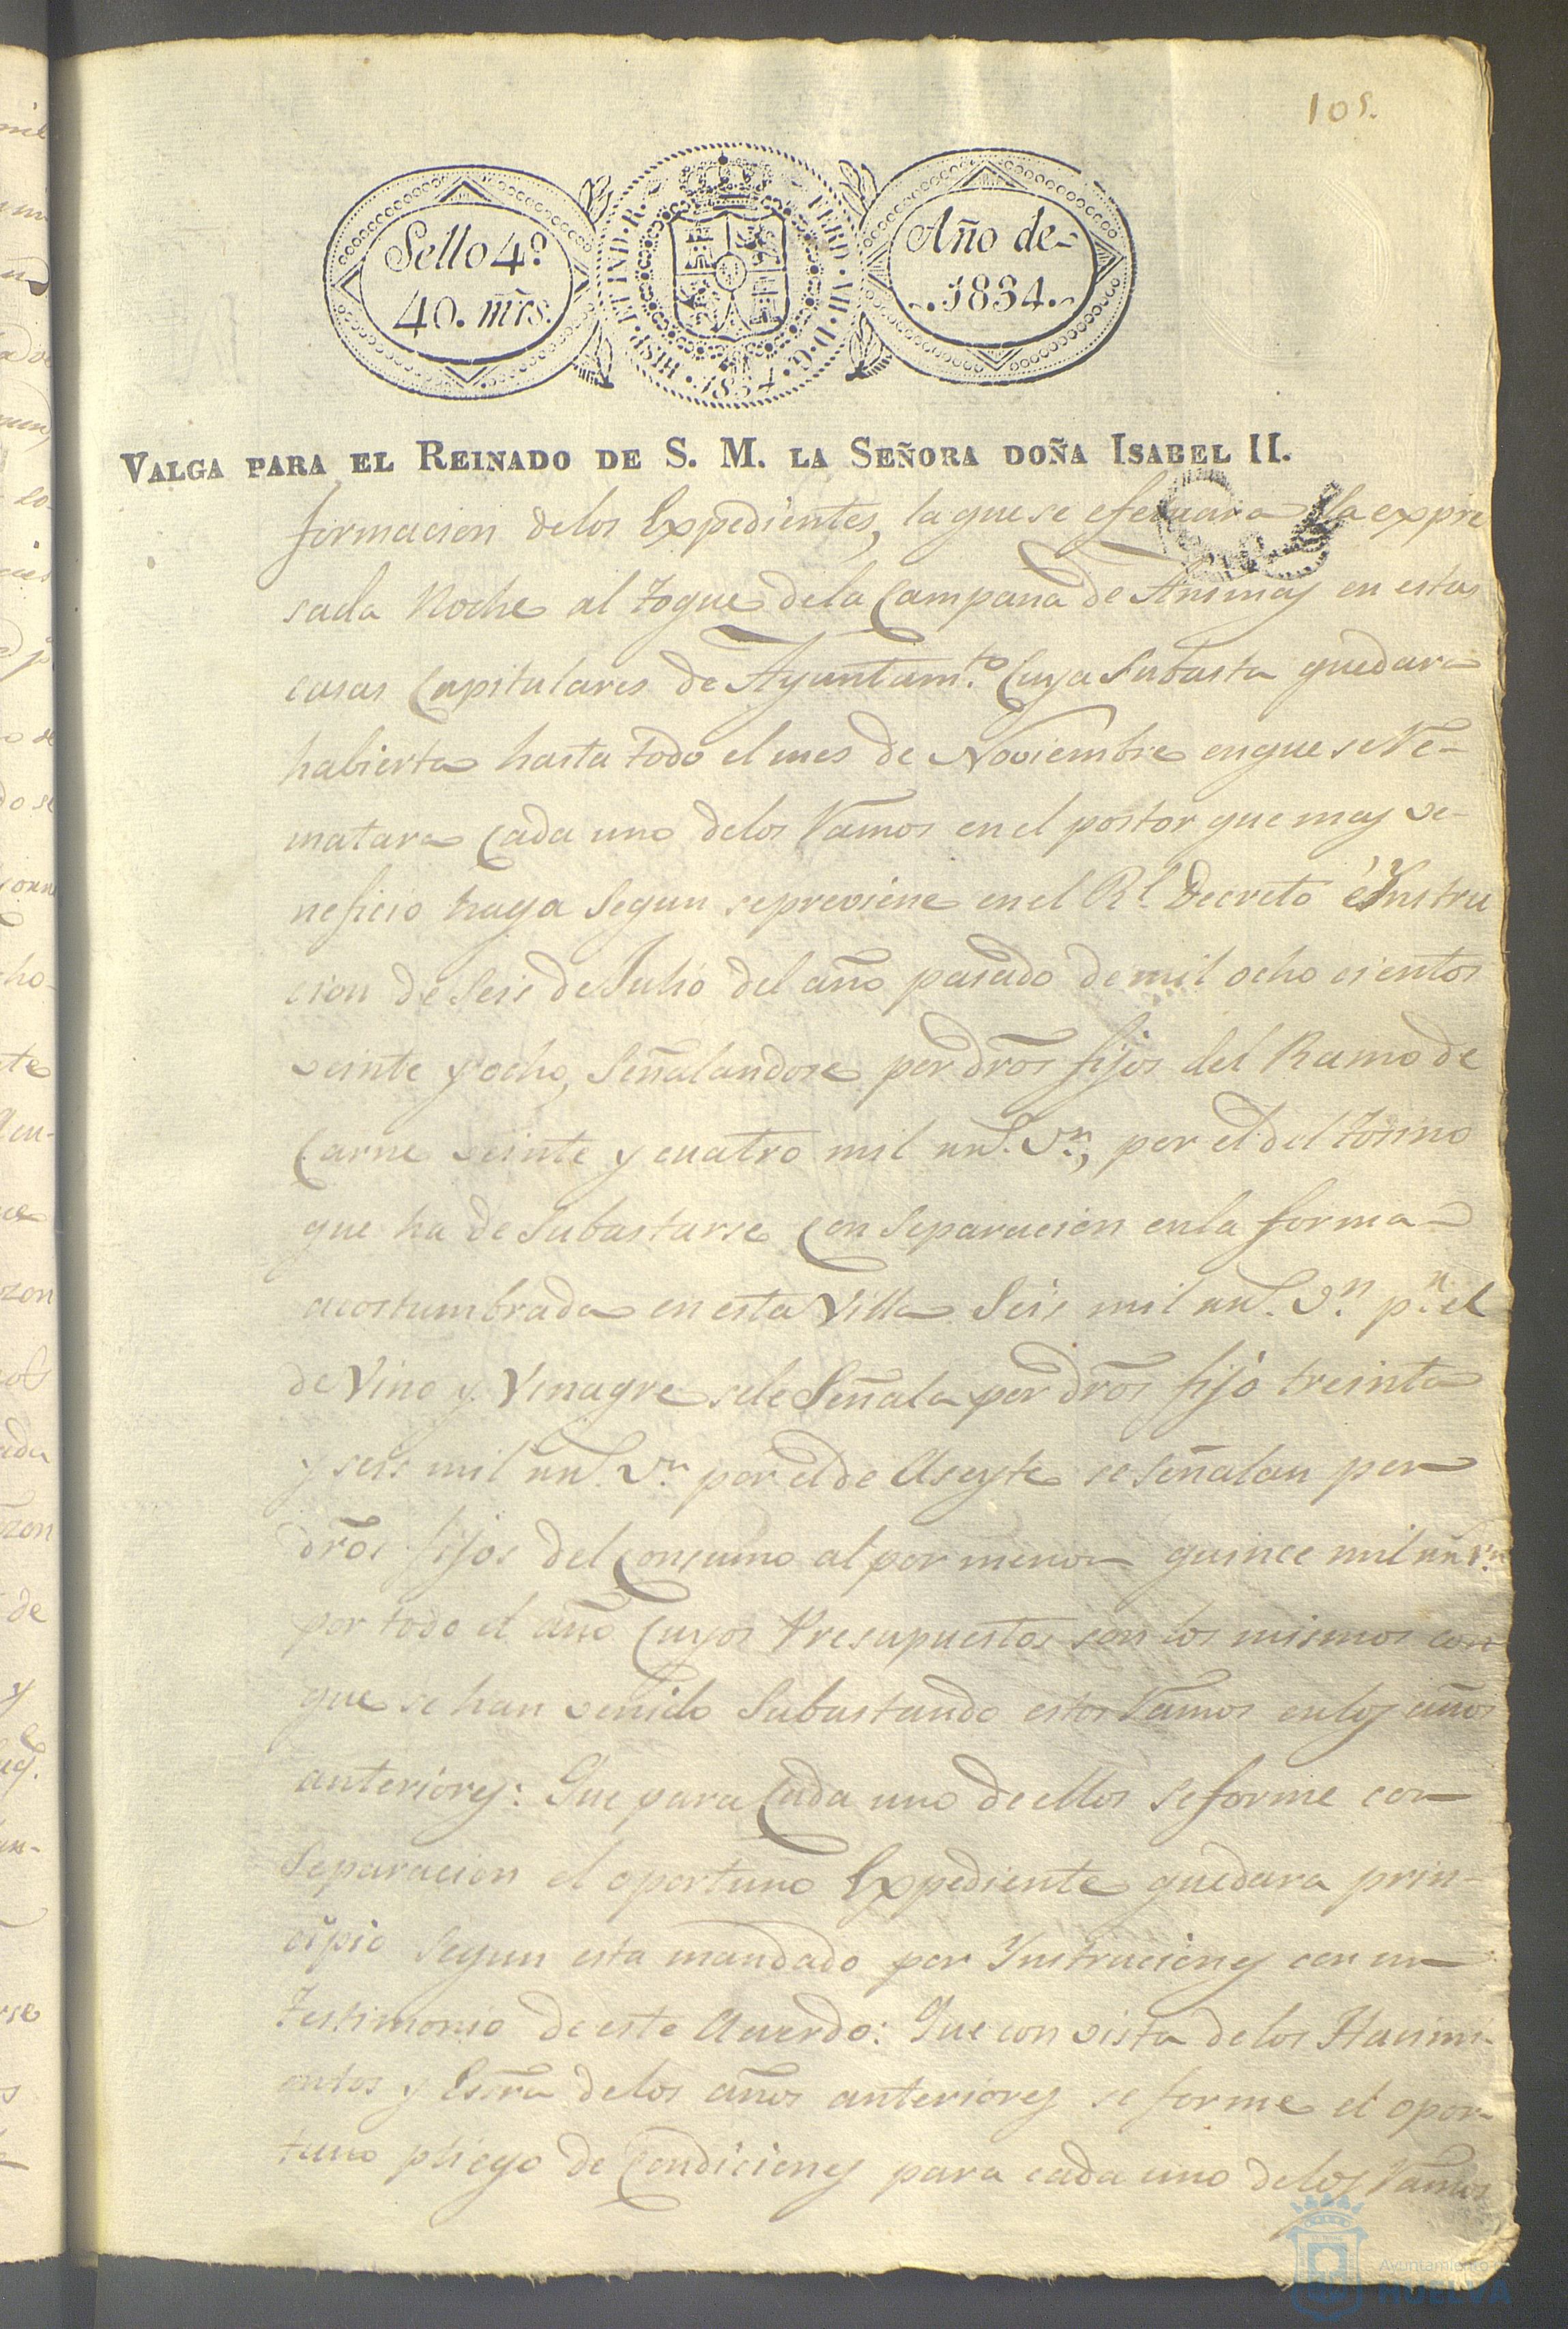 105.
Sello 4º
40. mrs.
HISP. ET IND. R. FERD. VII. D. G. 1834.
Año de
1834.
VALGA PARA EL REINADO DE S. M. LA SEÑORA DOÑA ISABEL II.
formacion delos Expedientes, la que se efectuara la expre
sada Noche al toque dela Campana de Animas en estas
casas Capitulares de Ayuntam.to Cuya Subasta quedara
habierta hasta todo el mes de Noviembre enque se Re-
matara Cada uno delos Ramos en el postor que mas ve-
neficio haga Segun sepreviene en el Rl. Decreto é Ynstru
cion de Seis de Julio del año pasado de mil ocho cientos
veinte y ocho, Señalandose por dros fijos del Ramo de
Carne veinte y cuatro mil rrs. vn., por el del tosino
que ha de Subastarse Con Separacion enla forma
acostumbrada en esta Villa Seis mil rrs. vn. pr. el
de Vino y Vinagre sele Señala por dros fijo treinta
y seis mil rrs. vn. por el de Aseyte se señalan por
dros fijos del Consumo al por menor quince mil rrs vn.
por todo el año Cuyos Presupuestos son los mismos con
que se han venido Subastando estos Ramos enlos años
anteriores: Que para Cada uno de ellos se forme con
Separacion el oportuno Expediente quedara prin-
cipio Segun esta mandado por Ynstruciones con un
testimonio de este Acuerdo: Que con vista delos Hacimi-
entos y Essra delos años anteriores se forme el opor-
tuno pliego de Condiciones para cada uno delos Ramos
Ayuntamiento
HUELVA